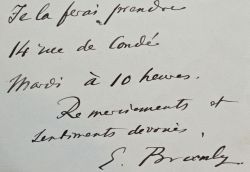 Je la ferai prendre
14 rue de Condé
Mardi à 10 heures.
Remerciements et
sentiments dévoués.
E.